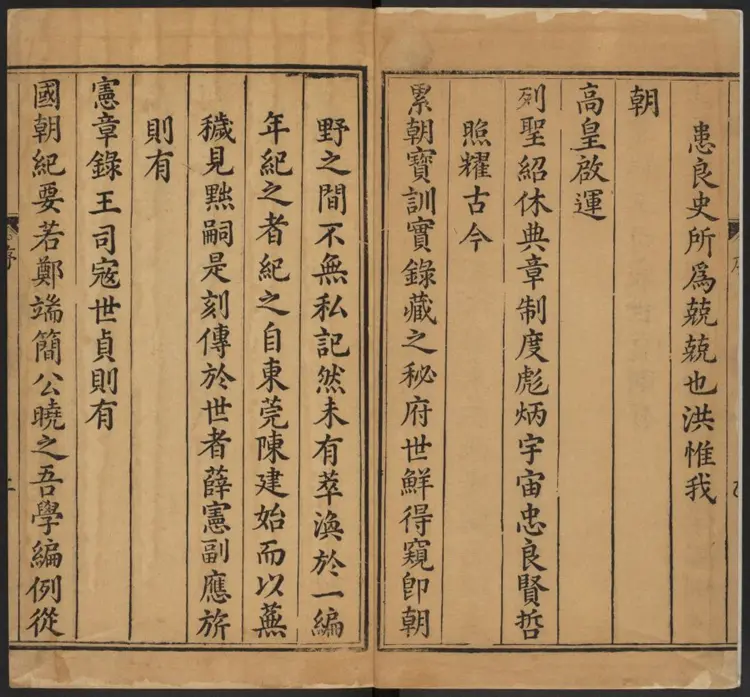 患良史所爲兢兢也洪惟我
朝
高皇啟運
列聖紹休典章制度彪炳宇宙忠良賢哲
照耀古今
累朝寶訓實錄藏之秘府世鮮得窺卽朝
野之間不無私記然未有萃渙於一編
年紀之者紀之自東莞陳建始而以蕪
穢見黜嗣是刻傳於世者薛憲副應旂
則有
憲章錄王司寇世貞則有
國朝紀要若鄭端簡公曉之吾學編例從
序
二